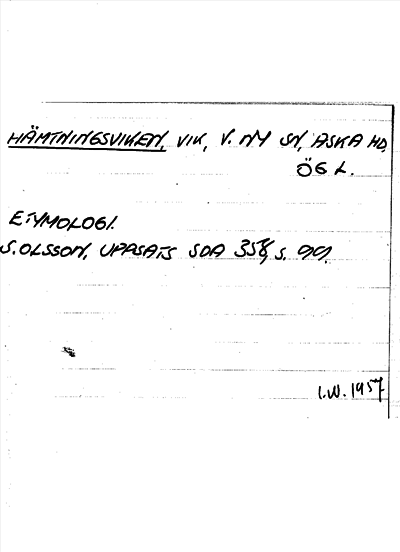 HÄMTNINGSVIKEN, VIK, V. NY SN, ASKA HD,
ÖGL.
ETYMOLOGI.
S. OLSSON, UPPSATS SDA 358, S. 99.
I.W. 1957